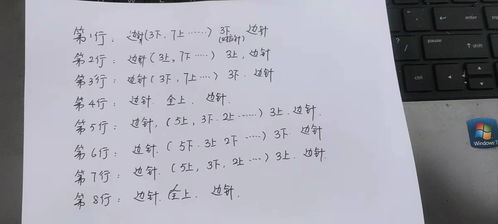 第1行: 边针(3下,7上……) 3下 边针
第2行: 边针(3上,7下……) 3上, 边针
第3行: 边针(3下,7上……) 3下. 边针
第4行: 边针. 全上. 边针.
第5行: 边针, (5上, 3下. 2上……) 3上. 边针
第6行: 边针. (5下. 3上 2下……) 3下 边针
第7行: 边针. (5上, 3下. 2上……) 3上. 边针
第8行: 边针. 全上. 边针.
Windows 7